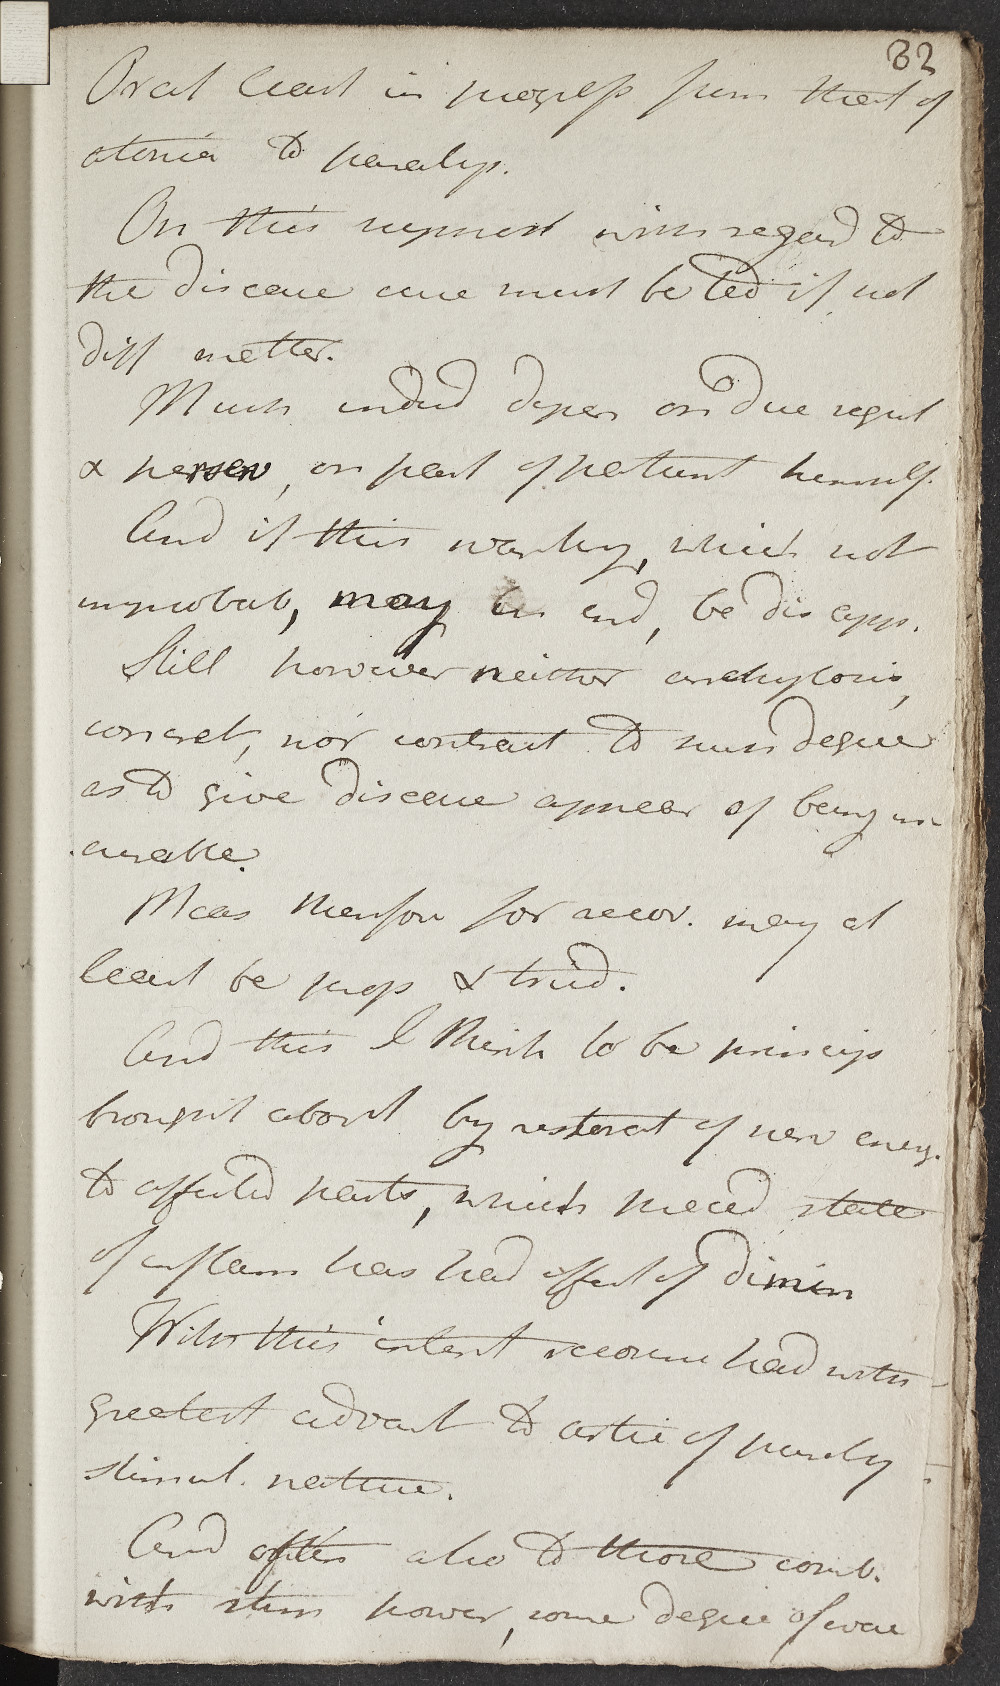 32
Or at least in progress from that of
atonia to paralys.
On this suppost with regard to
the disease cure must be ted if not
diff matter.
Much indeed depen on due regul
& persev, on part of patient himself.
And if this wanting, which not
improbab, may in end, be disapp.
Still however neither anchylosis,
concret, nor contract to such degree
as to give disease appear of being in-
curable.
Meas therefore for recov. may at
least be prop & tried.
And this I think to be princip
brought about by restorat of nerv energ.
to affected parts, which preced state
of inflam has had effect of dimin
With this intent recourse had with
greatest advant to artic of purely
stimul. nature.
And often also to those comb.
with stim power, some degree of evac